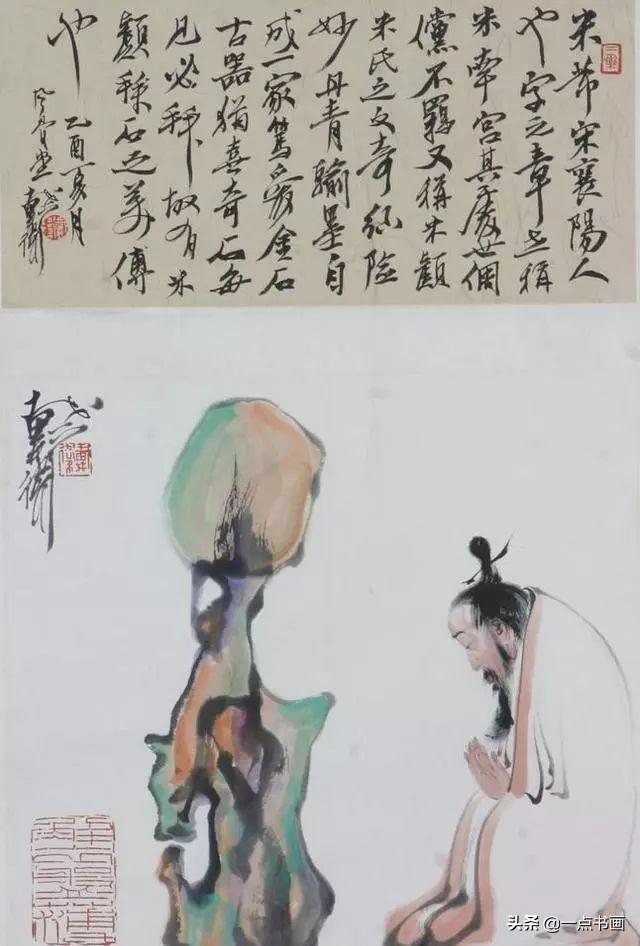 米芾宋襄陽人
也字元章世稱
米南宮其于處世倜
儻不羈又稱米顛
米氏之文奇絕險
妙丹青翰墨自
成一家篤愛金石
古器猶喜奇石每
見必拜故有米
顛拜石之美傳
也 乙酉亥月
头条 @一点书画